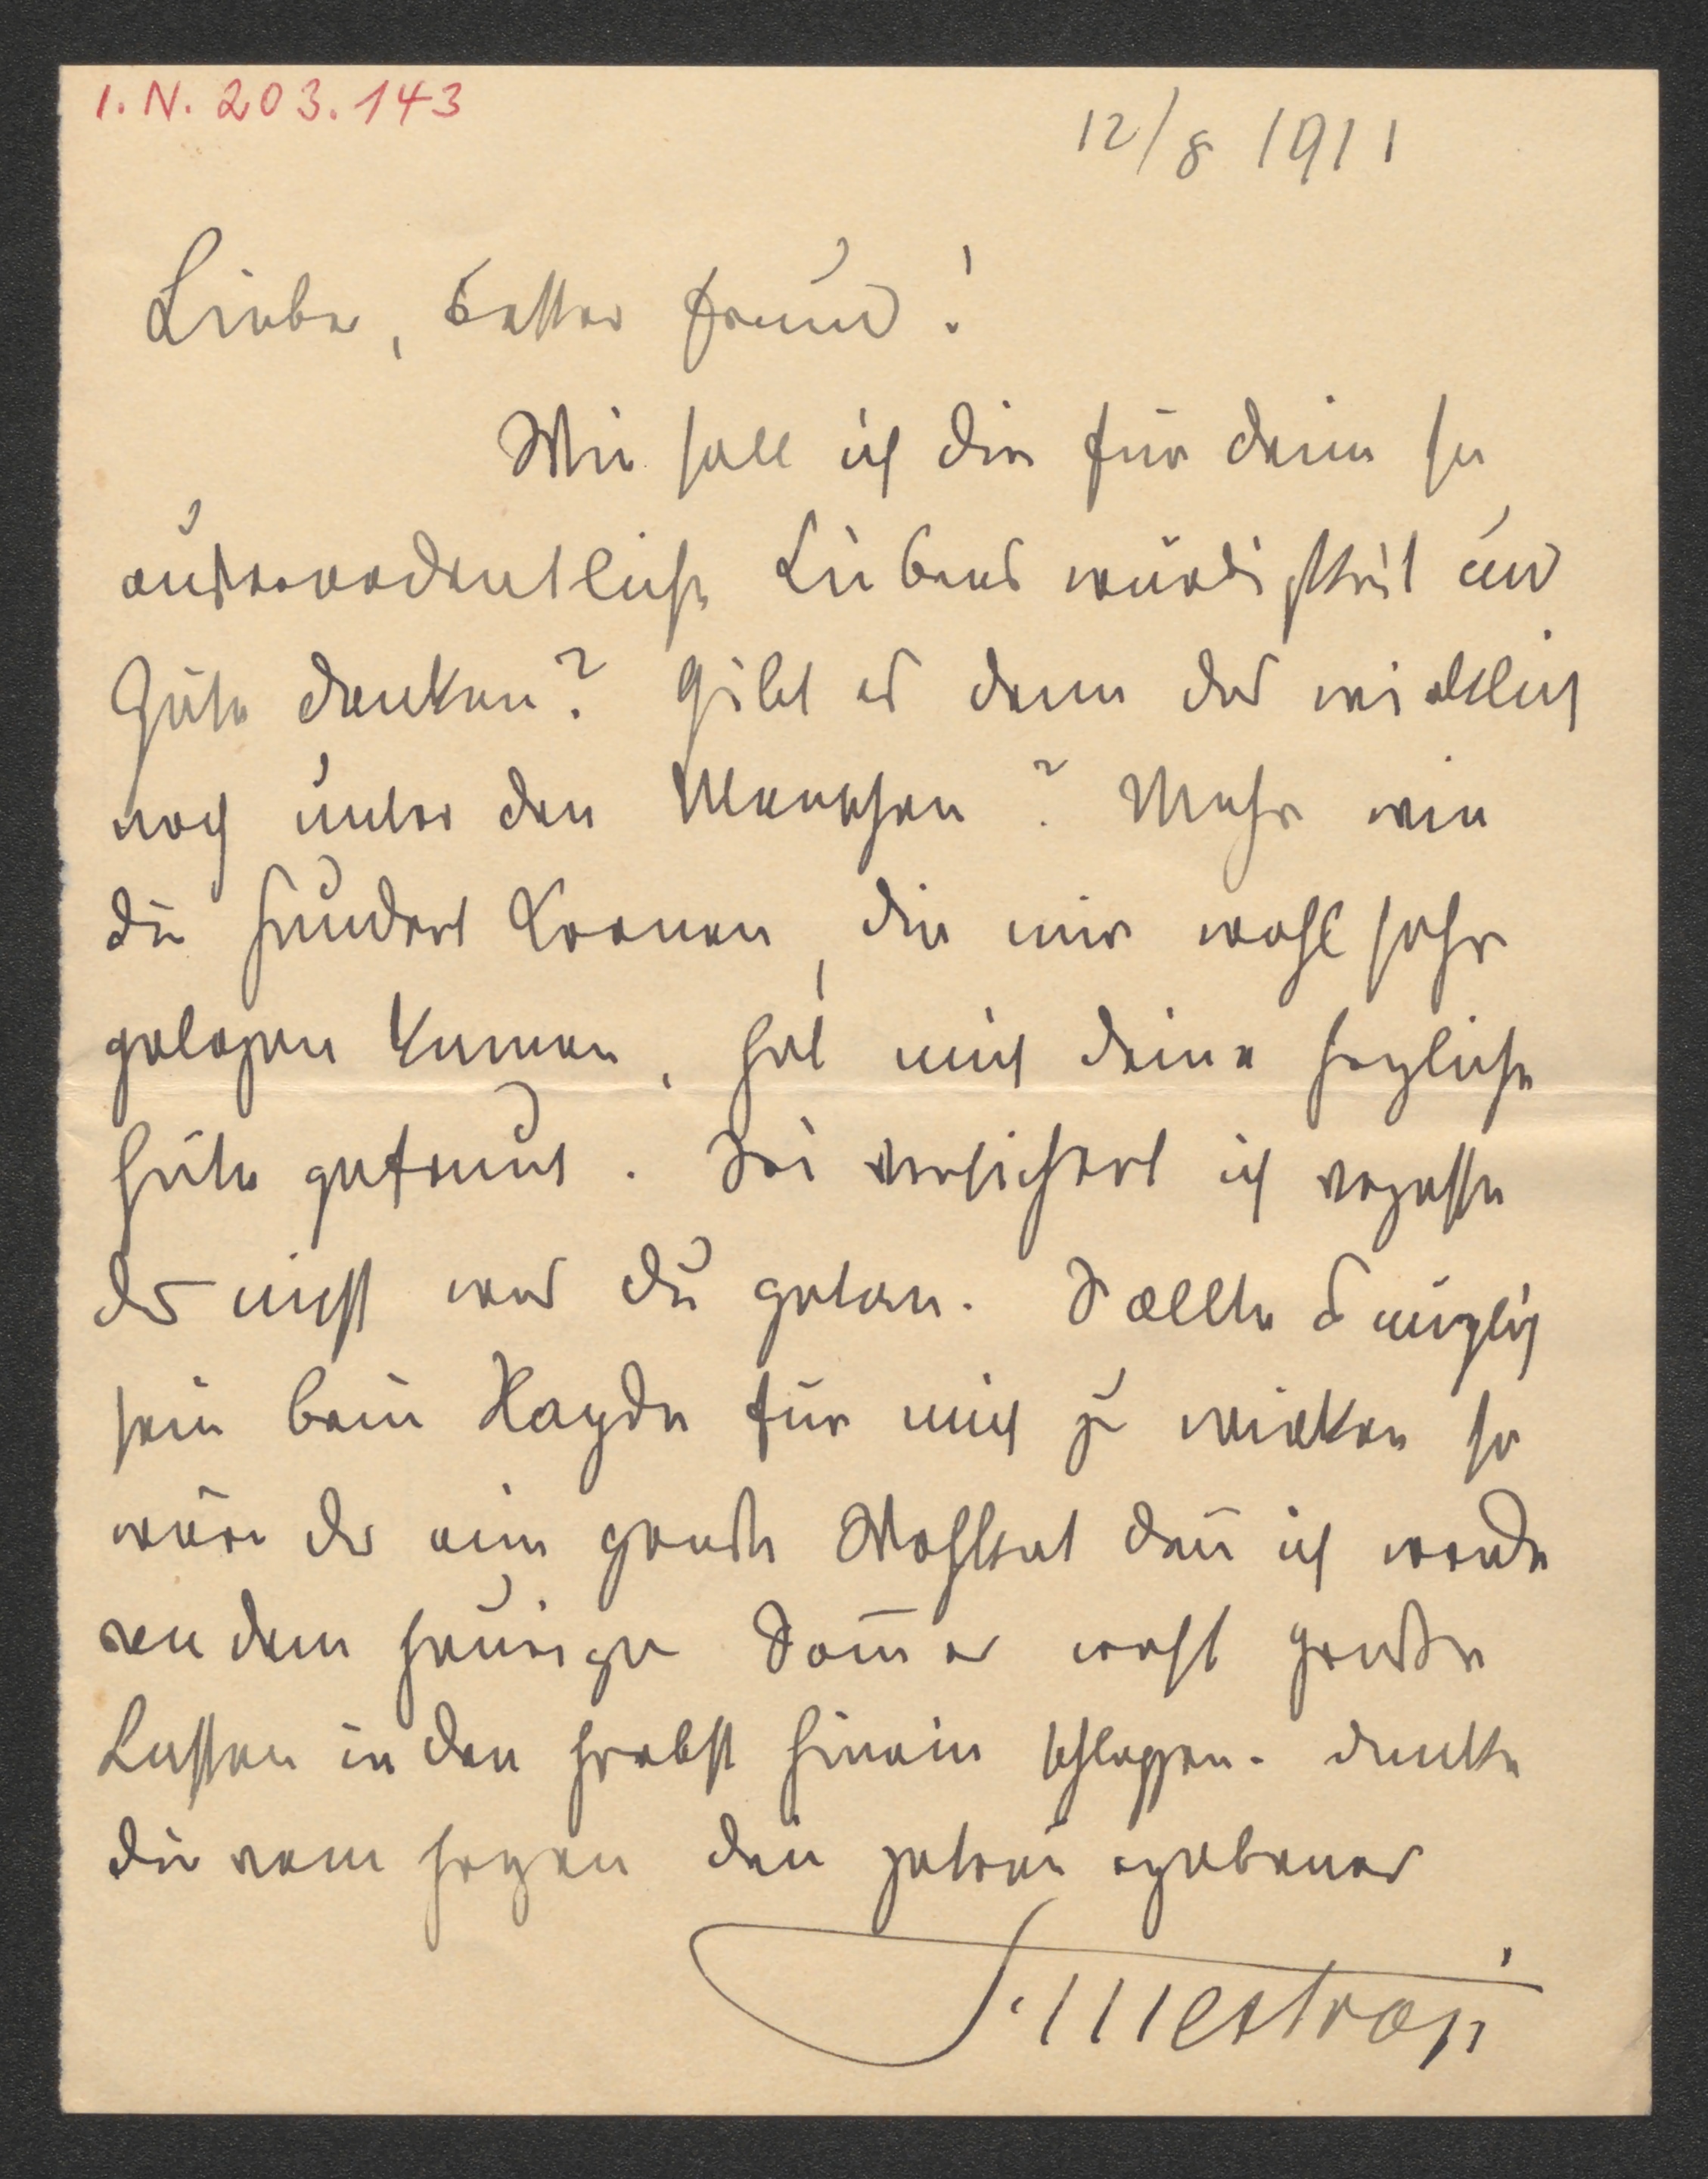 I.N. 203.143
12/8 1911
Lieber, bester Freund!
Wie soll ich dir für deine so
außerordentliche Liebenswürdigkeit und
Güte danken? Gibt es denn das wirklich
noch unter den Menschen? Mehr wie
die hundert Kronen, die mir wohl sehr
gelegen kamen, hat mich deine herzliche
Güte gefreut. Sei versichert ich vergesse
das nicht was du getan. Sollte es möglich
sein beim Haydn für mich zu wirken so
wäre das eine große Wohltat denn ich werde
von dem heurigen Som̄er wohl große
Lasten in den Herbst hinein schleppen. Danke
dir vom Herzen dein getreu ergebener